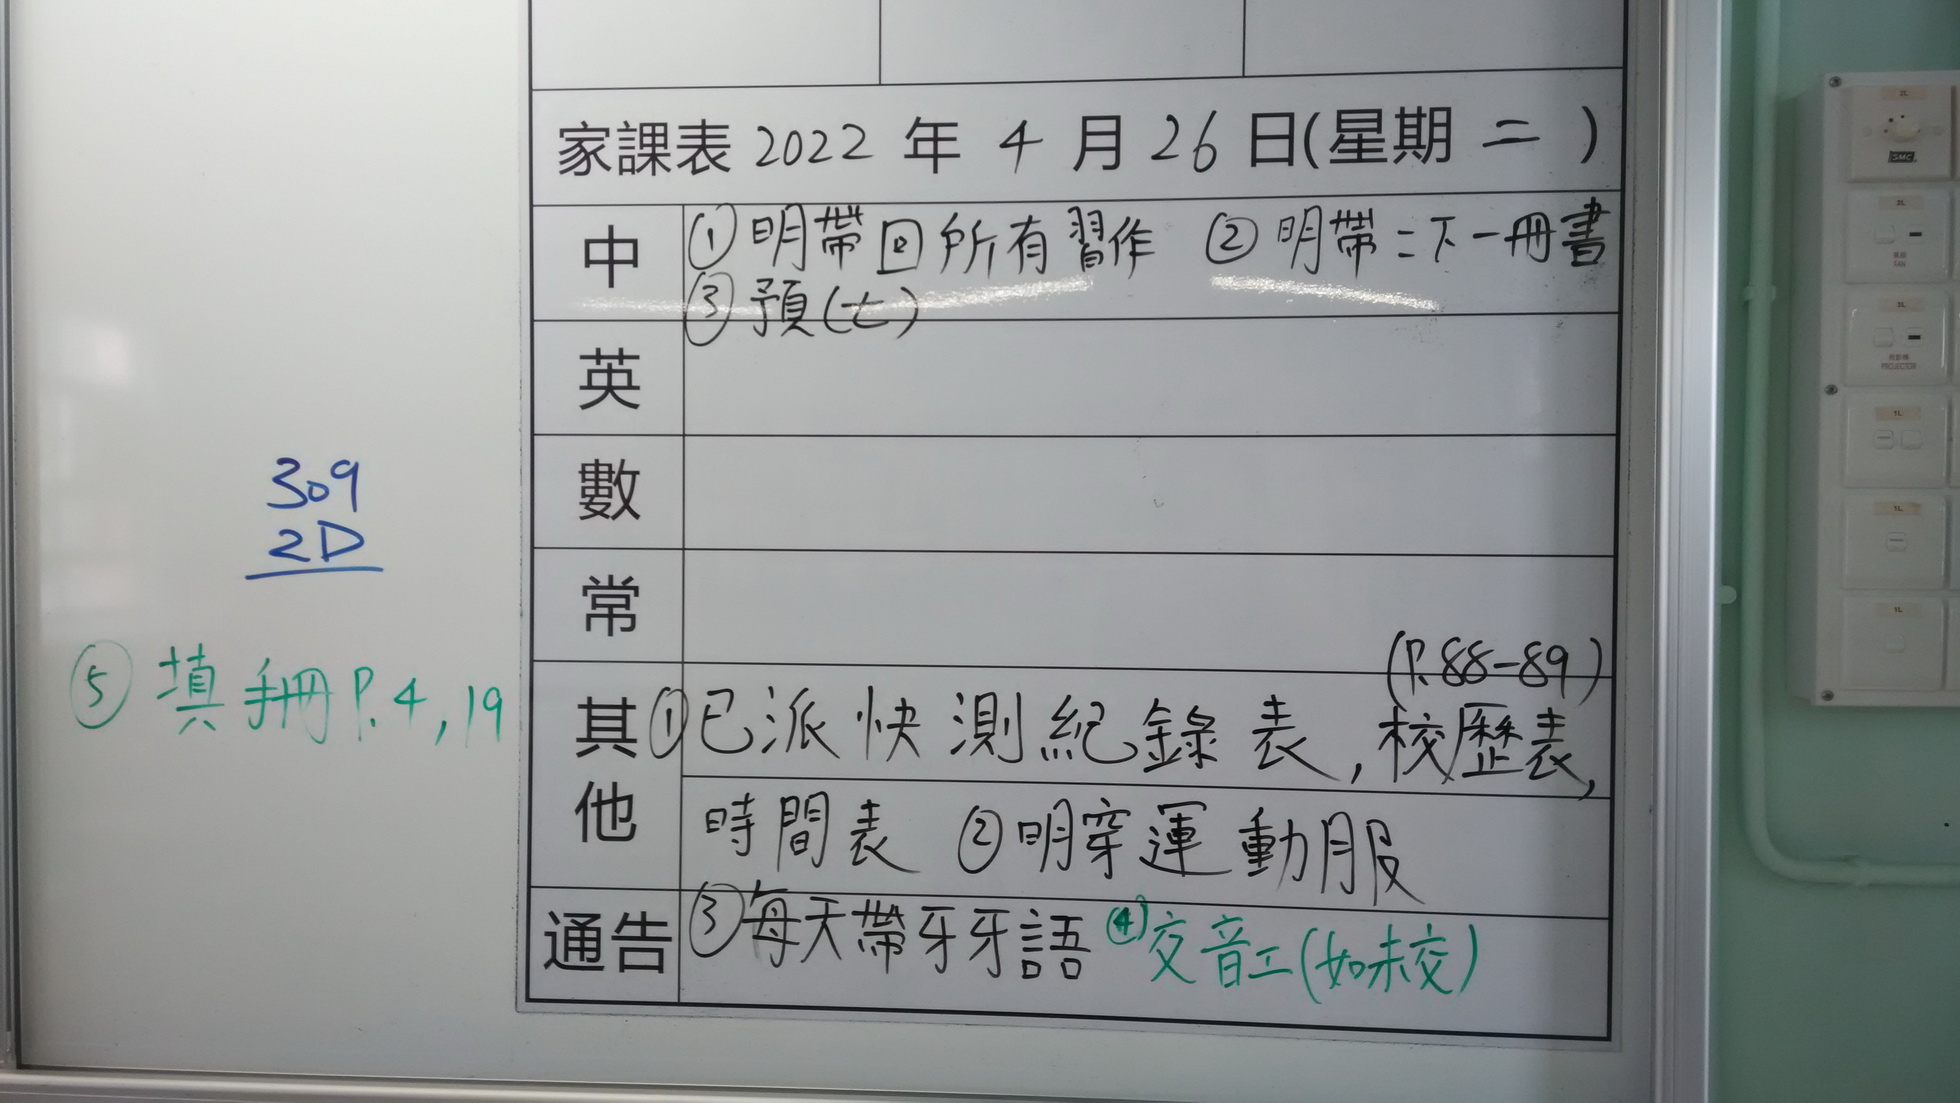 家課表 2022 年 4 月 26 日(星期 二 )
中
① 明帶回所有習作 ② 明帶二下一冊書
③ 預(七)
英
數
常
(P.88-89)
其他
① 已派快測紀錄表, 校歷表,
時間表 ② 明穿運動服
通告
③ 每天帶牙牙語 ④ 交音工(如未交)
309
2D
⑤ 填手冊 P.4, 19
2L
SMC
2L
FAN
2L
投影機
PROJECTOR
1L
1L
1L